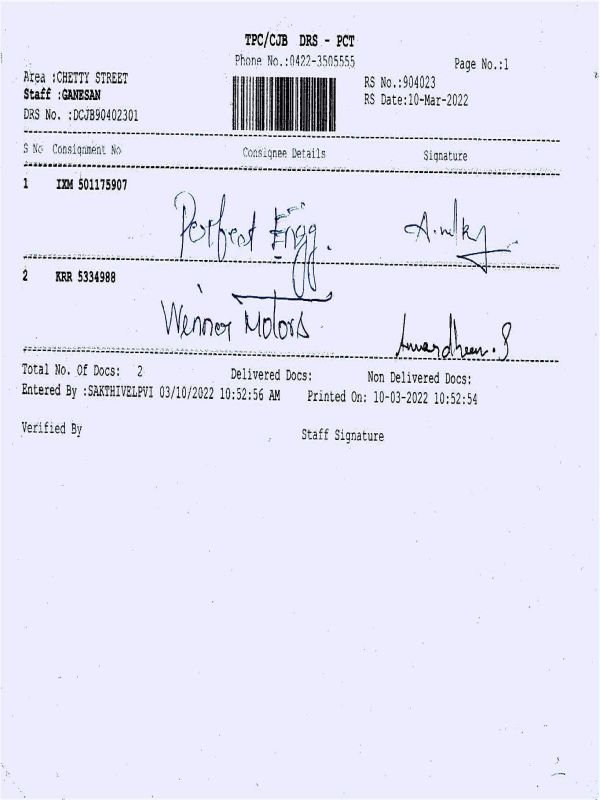 TPC/CJB DRS - PCT
Phone No.:0422-3505555
Page No.:1
Area :CHETTY STREET
RS No.:904023
Staff :GANESAN
RS Date:10-Mar-2022
DRS No. :DCJB90402301
S No Consignment No Consignee Details Signature
1 IXM 501175907
Perfect Engg.
2 KRR 5334988
Wennor Motors
Total No. Of Docs: 2 Delivered Docs: Non Delivered Docs:
Entered By :SAKTHIVELPVI 03/10/2022 10:52:56 AM Printed On: 10-03-2022 10:52:54
Verified By Staff Signature